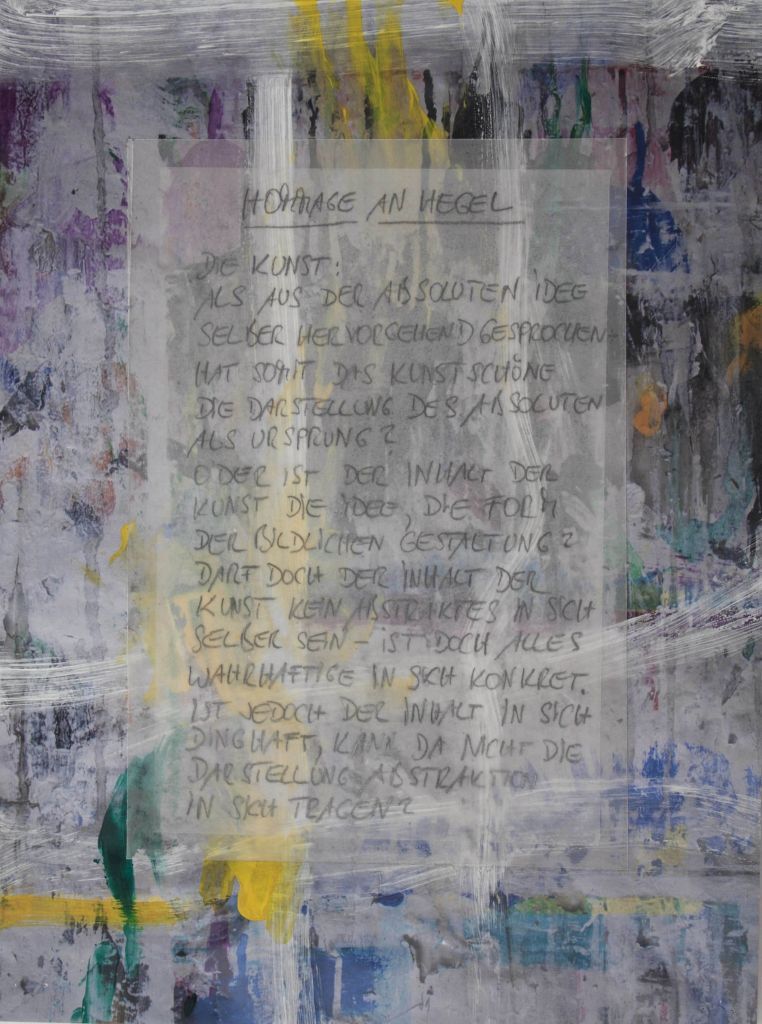 HOMMAGE AN HEGEL
DIE KUNST:
ALS AUS DER ABSOLUTEN IDEE
SELBER HERVORGEHEND GESPROCHEN -
HAT SOMIT DAS KUNSTSCHÖNE
DIE DARSTELLUNG DES ABSOLUTEN
ALS URSPRUNG?
ODER IST DER INHALT DER
KUNST DIE IDEE, DIE FORM
DER BILDLICHEN GESTALTUNG?
DARF DOCH DER INHALT DER
KUNST KEIN ABSTRAKTES IN SICH
SELBER SEIN - IST DOCH ALLES
WAHRHAFTIGE IN SICH KONKRET.
IST JEDOCH DER INHALT IN SICH
DINGHAFT, KANN DA NICHT DIE
DARSTELLUNG ABSTRAKTION
IN SICH TRAGEN?